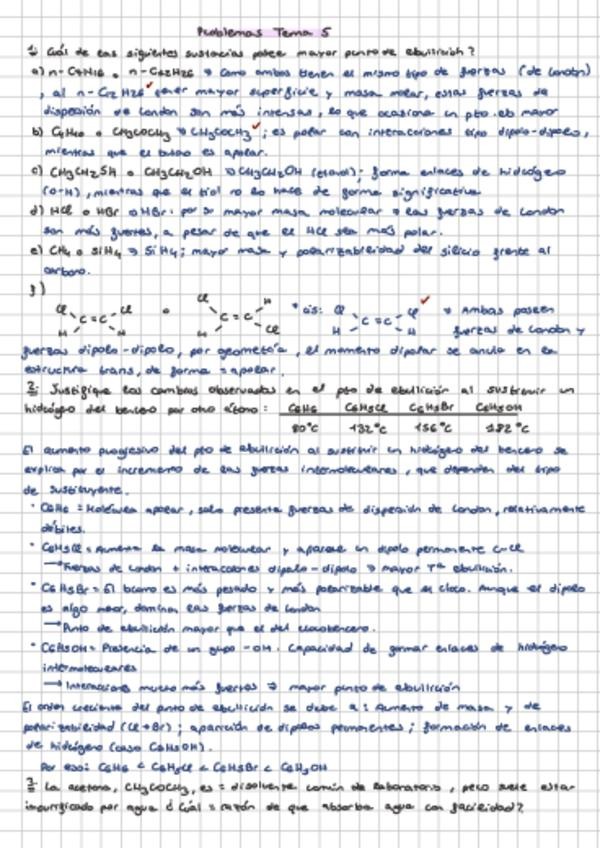 Problemas Tema 5
1: Cuál de las siguientes sustancias posee mayor punto de ebullición?
a) n- o n-C12H26 → Como ambos tienen el mismo tipo de fuerzas (de London)
, al n-C12H26 tener mayor superficie y masa molar, estas fuerzas de
dispersión de London son más intensas, lo que ocasiona un pto. eb mayor
b) C4H10 o CH3COCH3 → CH3COCH3 ✓; es polar con interacciones tipo dipolo-dipolo,
mientras que el butano es apolar.
c) CH3CH2SH o CH3CH2OH → CH3CH2OH (etanol); forma enlaces de hidrógeno
(O-H), mientras que el tiol no lo hace de forma significativa.
d) HCl o HBr → HBr: por su mayor masa molecular → las fuerzas de London
son más fuertes, a pesar de que el HCl sea más polar.
e) CH4 o SiH4 → SiH4; mayor masa y polarizabilidad del silicio frente al
carbono.
f)
Cl Cl Cl H * cis: Cl Cl ✓ → Ambas poseen
C=C o C=C C=C fuerzas de London y
H H H Cl H H
fuerzas dipolo-dipolo, por geometría, el momento dipolar se anula en la
estructura trans, de forma = apolar.
2: Justifique los cambios observados en el pto de ebullición al sustituir un
hidrógeno del benceno por otro átomo: C6H6 C6H5Cl C6H5Br C6H5OH
80°C 132°C 156°C 182°C
El aumento progresivo del pto de ebullición al sustituir un hidrógeno del benceno se
explica por el incremento de las fuerzas intermoleculares, que dependen del tipo
de sustituyente.
· C6H6 = Molécula apolar, solo presenta fuerzas de dispersión de London, relativamente
débiles.
· C6H5Cl = Aumenta la masa molecular y aparece un dipolo permanente C-Cl
→ Fuerzas de London + interacciones dipolo-dipolo → mayor Tª ebullición.
· C6H5Br = El bromo es más pesado y más polarizable que el cloro. Aunque el dipolo
es algo menor, dominan las fuerzas de London
→ Punto de ebullición mayor que el del clorobenceno.
· C6H5OH = Presencia de un grupo -OH. Capacidad de formar enlaces de hidrógeno
intermoleculares
→ Interacciones mucho más fuertes → mayor punto de ebullición
El orden creciente del punto de ebullición se debe a: Aumento de masa y de
polarizabilidad (Cl→Br); aparición de dipolos permanentes; formación de enlaces
de hidrógeno (caso C6H5OH).
Por eso: C6H6 < C6H5Cl < C6H5Br < C6H5OH
3: La acetona, CH3COCH3, es = disolvente común de laboratorio, pero suele estar
impurificado por agua ¿Cuál = razón de que absorba agua con facilidad?